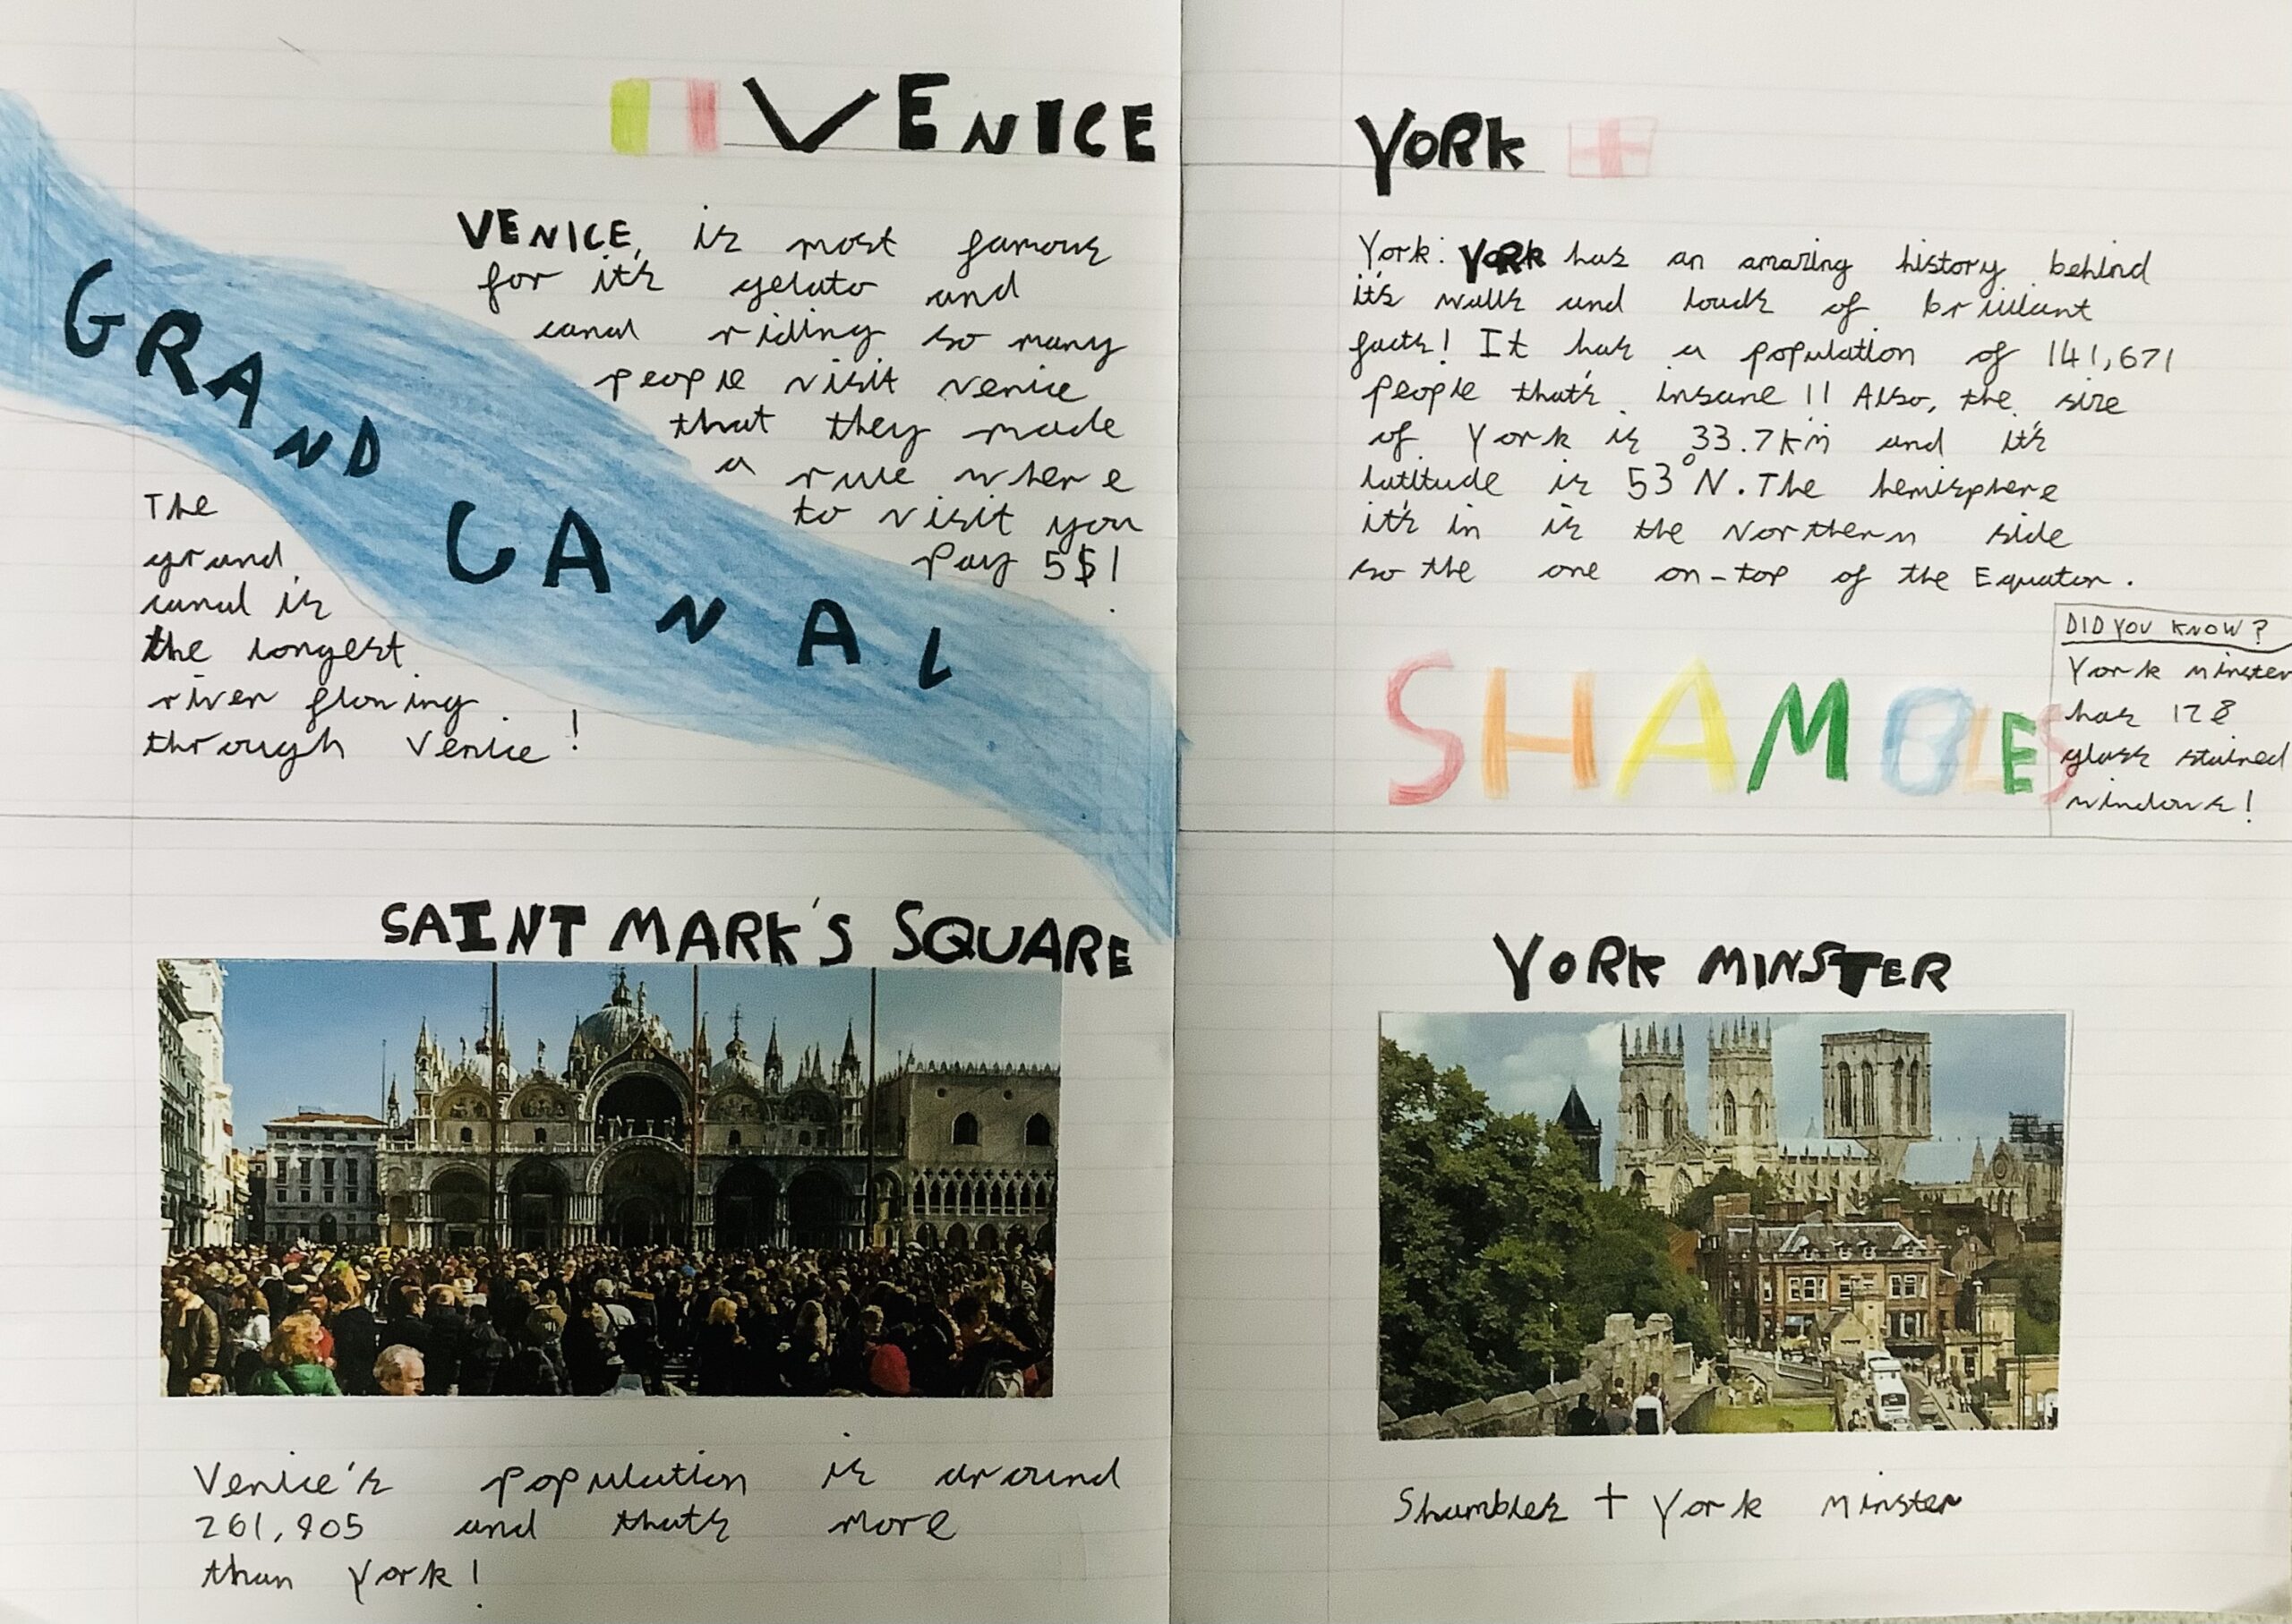 VENICE
VENICE, is most famous
for it's gelato and
canal riding so many
people visit venice
that they made
a rule where
to visit you
Pay 5$!
GRAND CANAL
The
grand
canal is
the longest
river flowing
through Venice!
SAINT MARK'S SQUARE
Venice's population is around
261,905 and that's more
than York!
YORK
York: YORK has an amazing history behind
it's walls and loads of brilliant
facts! It has a population of 141,671
people that's insane!! Also, the size
of York is 33.7km and it's
latitude is 53°N. The hemisphere
it's in is the Northern side
so the one on-top of the Equator.
SHAMBLES
DID YOU KNOW?
York minster
has 128
glass stained
windows!
YORK MINSTER
Shambles + York Minster